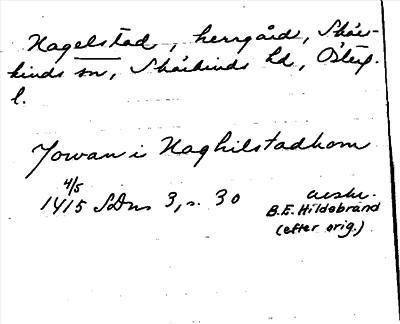 Nagelstad, herrgård, Skär-
kinds sn, Skärkinds hd, Östg.
l.
Jowan i Naghilstadhom
4/5
1415 SDns 3, s. 30
avskr.
B.E. Hildebrand
(efter orig.)